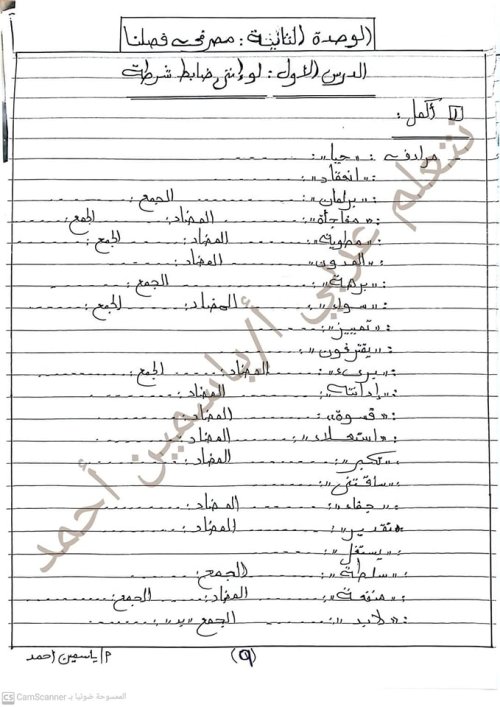 الوحدة الثانية: مصر في فصلنا
الدرس الأول: لو إنني ضابط شرطة
1 أكمل:
- مرادف: «حيا»: ..........
«انعقاد»: ..........
«برلمان»: .......... الجمع: ..........
«مفاجأة»: .......... المضاد: .......... الجمع: ..........
«مطوية»: .......... المضاد: .......... الجمع: ..........
«المدون»: .......... المضاد: ..........
«برهة»: .......... الجمع: ..........
«سواء»: .......... المضاد: .......... الجمع: ..........
«تمييز»: ..........
«يقترفون»: ..........
«برىء»: .......... المضاد: .......... الجمع: ..........
«إدانته»: .......... المضاد: ..........
«قسوة»: .......... المضاد: ..........
«استعلاء»: .......... المضاد: ..........
«تكبر»: .......... المضاد: ..........
«ساقتني»: ..........
«جفاء»: .......... المضاد: ..........
«تقدير»: .......... المضاد: ..........
«يستغل»: ..........
«سلطة»: .......... الجمع: ..........
«منفعة»: .......... المضاد: .......... الجمع: ..........
«لابد»: .......... الجمع «بد»: ..........
نتعلم عربي أ/ياسمين أحمد
(9)
أ/ ياسمين أحمد
الممسوحة ضوئيا بـ CamScanner
CS